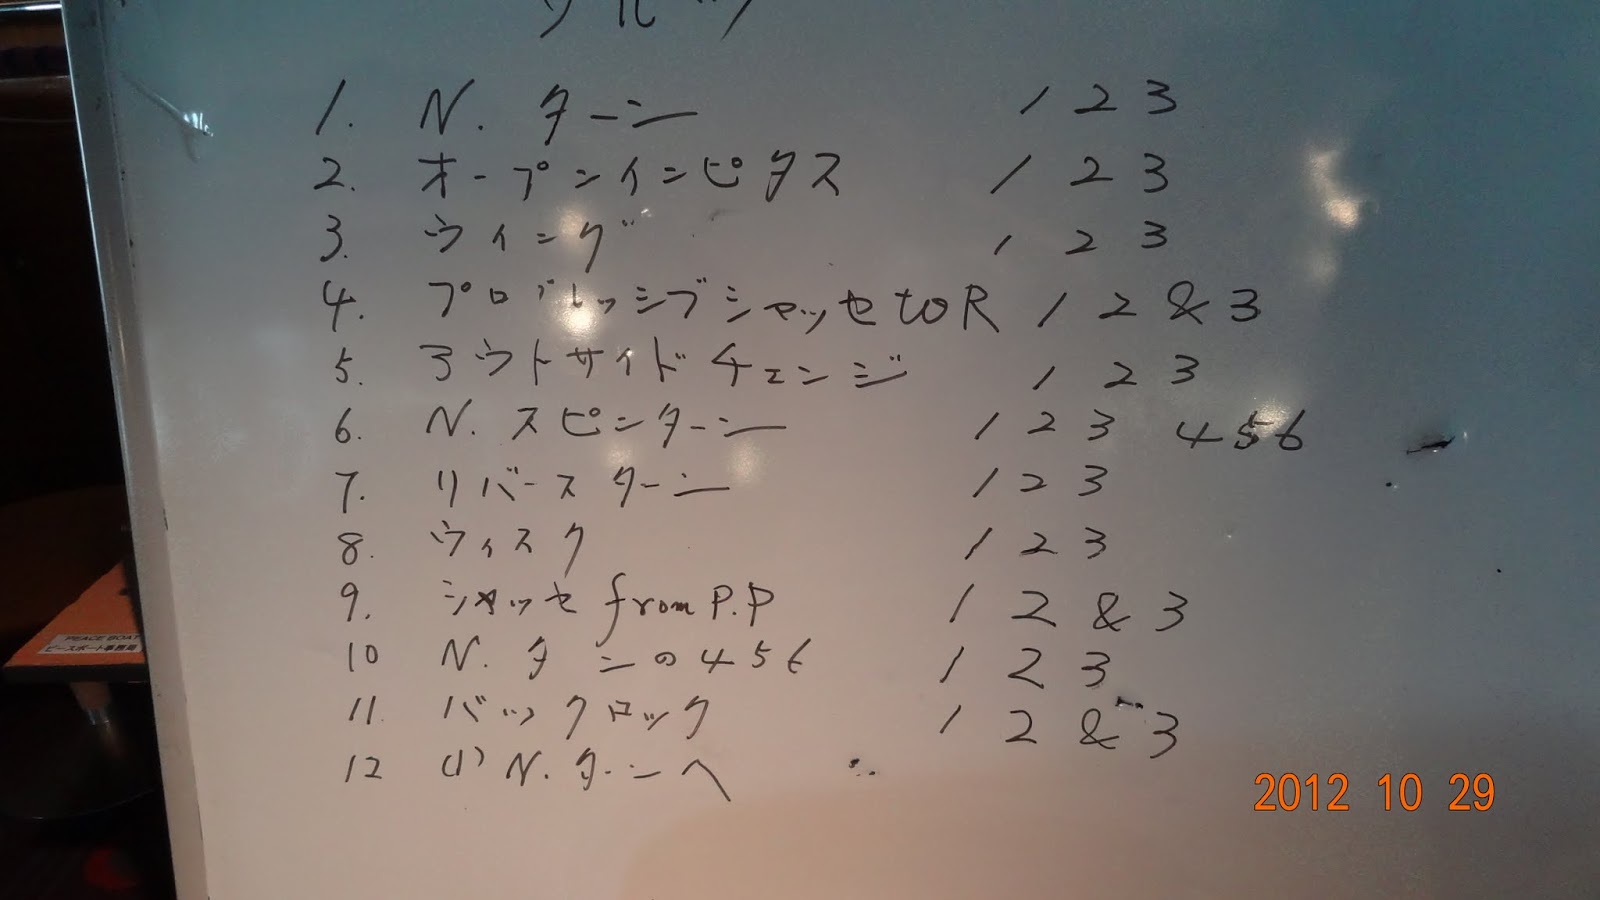 ワルツ
1. N. ターン 1 2 3
2. オープンインピタス 1 2 3
3. ウイング 1 2 3
4. プログレッシブシャッセ to R 1 2 & 3
5. アウトサイドチェンジ 1 2 3
6. N. スピンターン 1 2 3 4 5 6
7. リバースターン 1 2 3
8. ウィスク 1 2 3
9. シャッセ from P.P 1 2 & 3
10 N. ターンの 4 5 6 1 2 3
11. バックロック 1 2 & 3
12 (1) N. ターンへ
PEACE BOAT
ピースボート事務局
2012 10 29